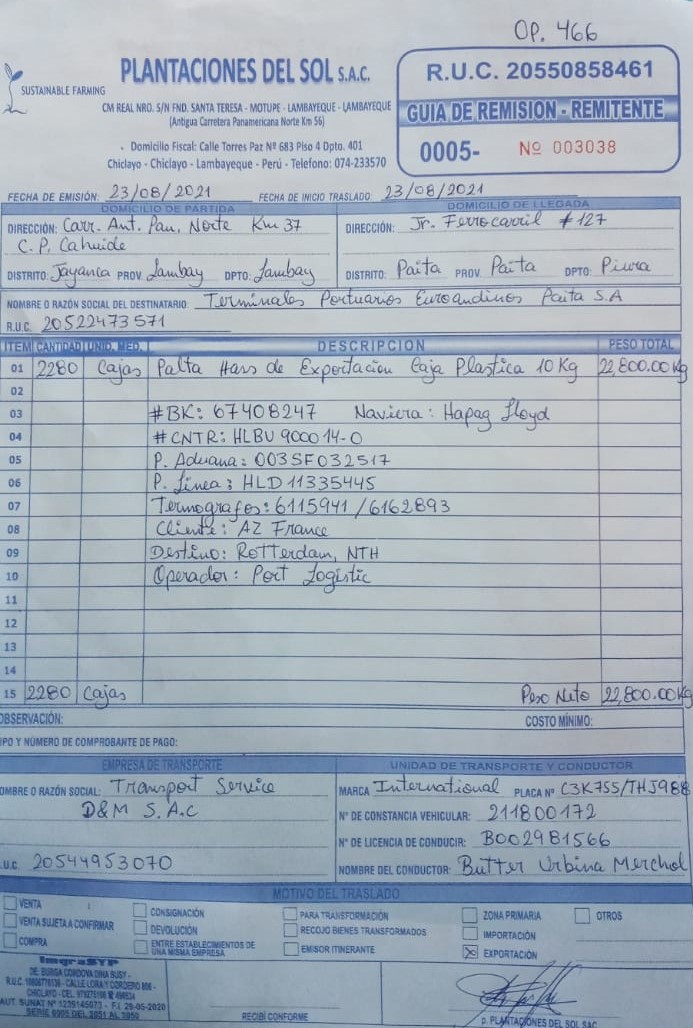 OP. 466
SUSTAINABLE FARMING
PLANTACIONES DEL SOL S.A.C.
CM REAL NRO. S/N FND. SANTA TERESA - MOTUPE - LAMBAYEQUE - LAMBAYEQUE
(Antigua Carretera Panamericana Norte Km 56)
Domicilio Fiscal: Calle Torres Paz Nº 683 Piso 4 Dpto. 401
Chiclayo - Chiclayo - Lambayeque - Perú - Telefono: 074-233570
R.U.C. 20550858461
GUIA DE REMISION - REMITENTE
0005- Nº 003038
FECHA DE EMISIÓN: 23/08/2021 FECHA DE INICIO TRASLADO: 23/08/2021
DOMICILIO DE PARTIDA
DIRECCIÓN: Carr. Ant. Pan. Norte Km 37
C.P. Cahuide
DISTRITO: Jayanca PROV. Lambay DPTO: Lambay
DOMICILIO DE LLEGADA
DIRECCIÓN: Jr. Ferrocarril #127
DISTRITO: Paita PROV. Paita DPTO: Piura
NOMBRE O RAZÓN SOCIAL DEL DESTINATARIO: Terminales Portuarios Euroandinos Paita S.A
R.U.C. 20522473571
ITEM CANTIDAD UNID. MED. DESCRIPCION PESO TOTAL
01 2280 Cajas Palta Hass de Exportacion Caja Plastica 10 Kg 22,800.00 Kg
02
03 #BK: 67408247 Naviera: Hapag Lloyd
04 #CNTR: HLBU 900014-0
05 P. Aduana: 003SF032517
06 P. Línea: HLD 11335445
07 Termografos: 6115941 / 6162893
08 Cliente: AZ France
09 Destino: Rotterdam, NTH
10 Operador: Port Logistic
11
12
13
14
15 2280 Cajas Peso Neto 22,800.00 Kg
OBSERVACIÓN: COSTO MÍNIMO:
IPO Y NÚMERO DE COMPROBANTE DE PAGO:
EMPRESA DE TRANSPORTE
OMBRE O RAZÓN SOCIAL: Transport Service
D&M S.A.C
.U.C. 20544953070
UNIDAD DE TRANSPORTE Y CONDUCTOR
MARCA International PLACA Nº C3K755/THJ988
Nº DE CONSTANCIA VEHICULAR: 211800172
Nº DE LICENCIA DE CONDUCIR: B002981566
NOMBRE DEL CONDUCTOR: Butter Urbina Merchol
MOTIVO DEL TRASLADO
VENTA
VENTA SUJETA A CONFIRMAR
COMPRA
CONSIGNACIÓN
DEVOLUCIÓN
ENTRE ESTABLECIMIENTOS DE
UNA MISMA EMPRESA
PARA TRANSFORMACIÓN
RECOJO BIENES TRANSFORMADOS
EMISOR ITINERANTE
ZONA PRIMARIA
IMPORTACIÓN
EXPORTACIÓN
OTROS
DE: BURGA CORDOVA DINA BUSY -
CALLE LORA Y CORDERO 806 -
AUT. SUNAT Nº 1235145073 - F.I. 29-05-2020
SERIE 0005 DEL 2051 AL 3050
RECIBÍ CONFORME
p. PLANTACIONES DEL SOL SAC